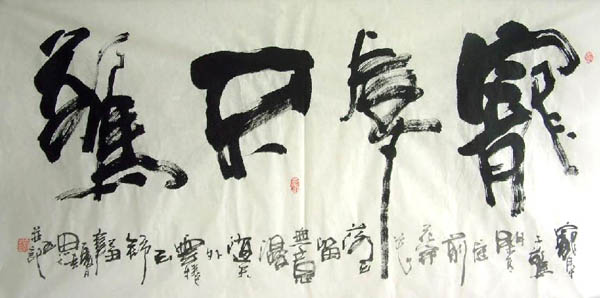 寵辱不驚
寵辱不驚閒看庭前花開花落去留無意漫隨天外雲捲云舒